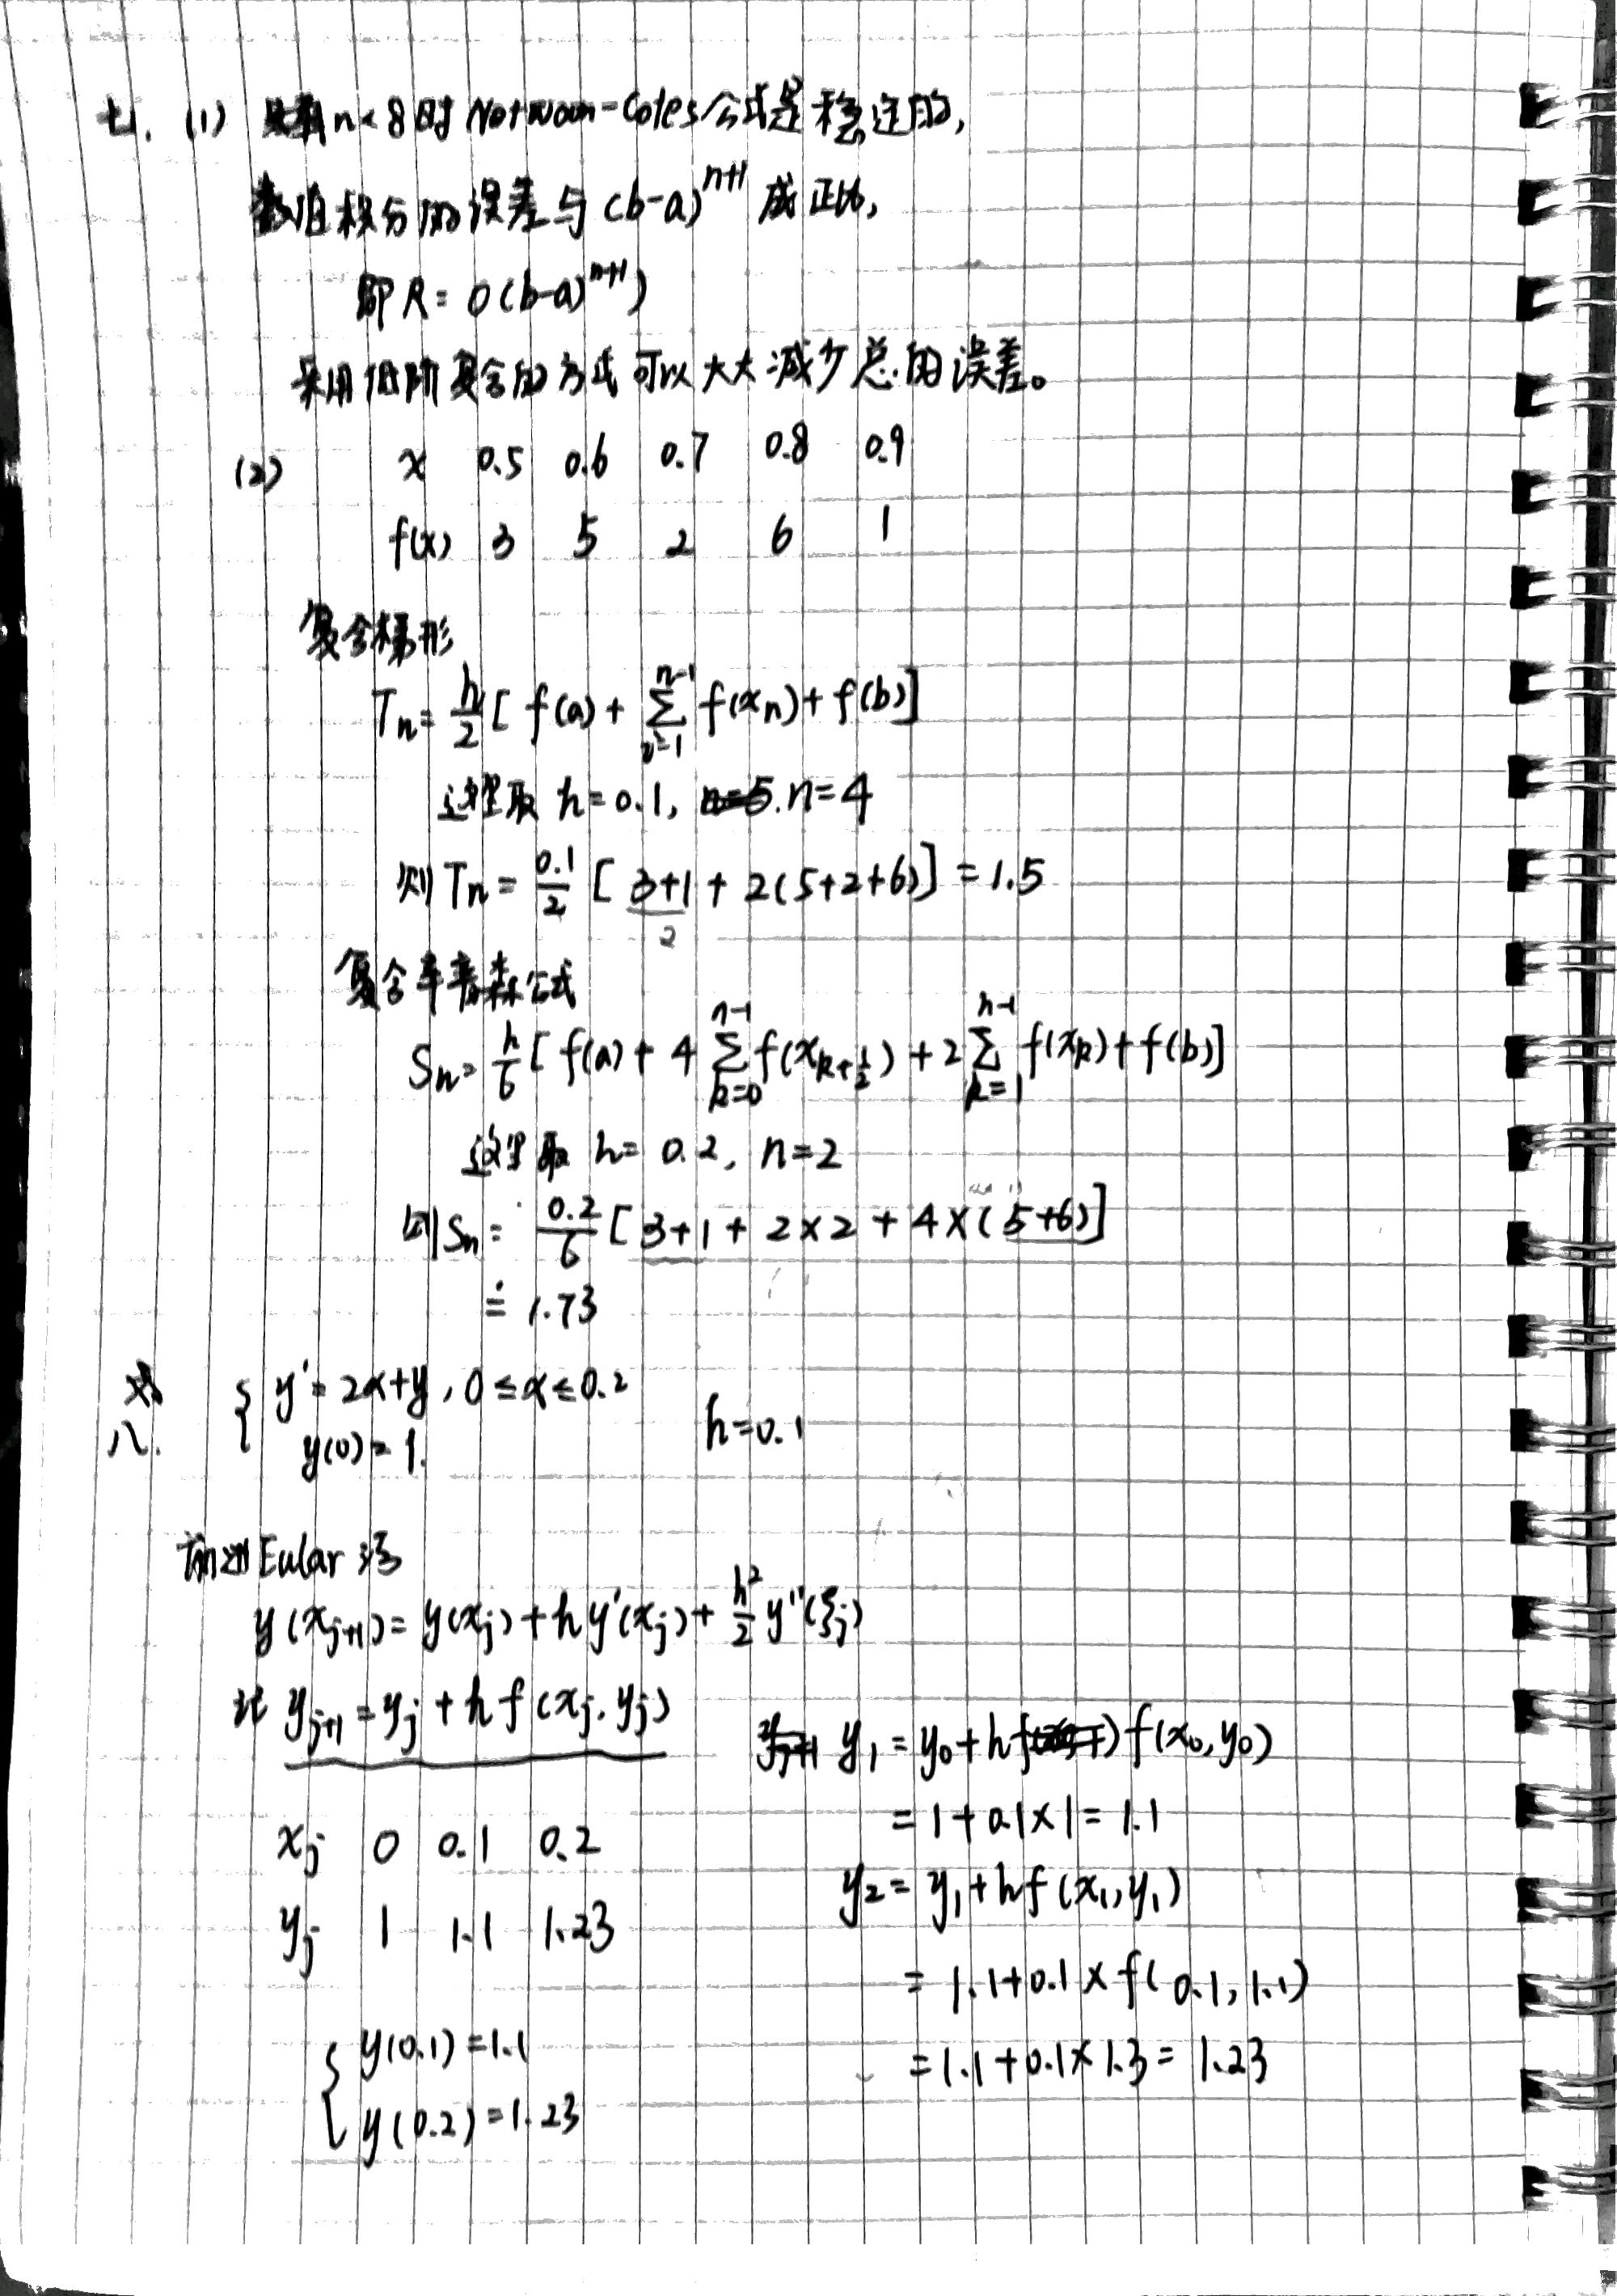 七. (1) 只有n<8时 Notwoon-Coles公式是稳定的,
数值积分的误差与 (b-a)^{n+1} 成正比,
即 R = O(b-a)^{n+1})
采用低阶复合的方式可以大大减少总的误差。
(2) x 0.5 0.6 0.7 0.8 0.9
f(x) 3 5 2 6 1
复合梯形
T_n = h/2 [ f(a) + ∑_{n=1}^{n-1} f(x_n) + f(b)]
这里取 h=0.1, n=5. n=4
则 T_n = 0.1/2 [ 3+1 + 2(5+2+6)] = 1.5
2
复合辛普森公式
S_n = h/6 [ f(a) + 4 ∑_{k=0}^{n-1} f(x_{k+1/2}) + 2 ∑_{k=1}^{n-1} f(x_k) + f(b)]
这里取 h= 0.2, n=2
则 S_n = 0.2/6 [ 3+1 + 2×2 + 4×( 5+6)]
≐ 1.73
八. { y' = 2x+y , 0≤x≤0.2
y(0) = 1. h=0.1
前进Eular 法
y(x_{j+1}) = y(x_j) + h y'(x_j) + h²/2 y''(ξ_j)
y_{j+1} = y_j + h f (x_j, y_j)
y_1 = y_0 + h f(x_0, y_0)
= 1 + 0.1×1 = 1.1
x_j 0 0.1 0.2
y_2 = y_1 + hf (x_1, y_1)
y_j 1 1.1 1.23
= 1.1+0.1 × f( 0.1, 1.1)
{ y(0.1) = 1.1
= 1.1+0.1×1.3 = 1.23
y(0.2) = 1.23